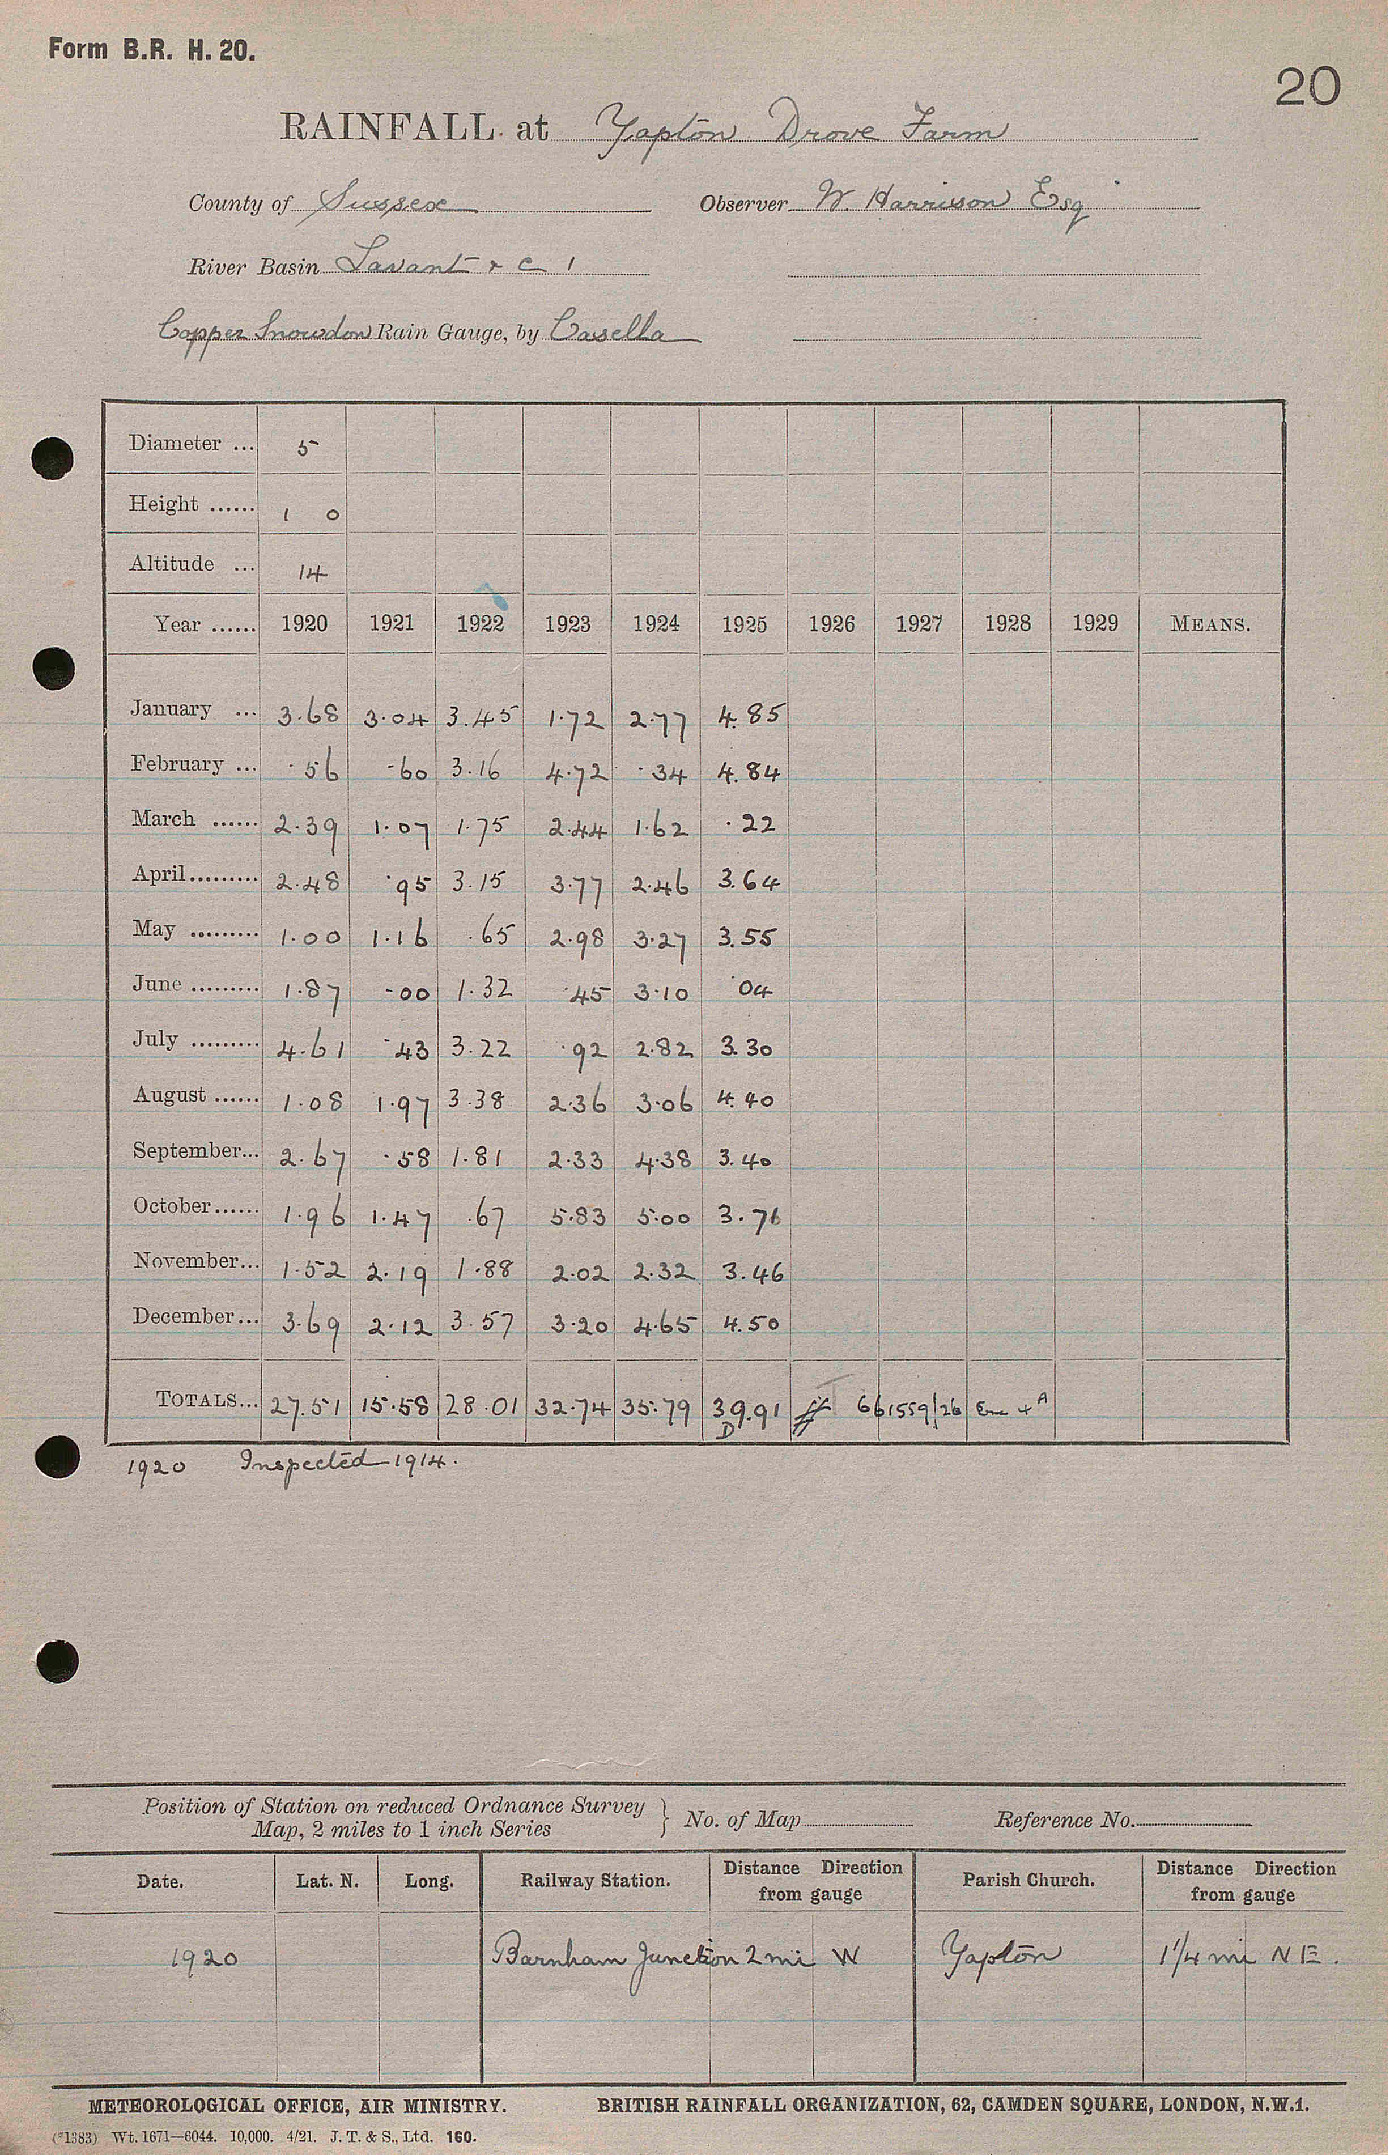 Form B.R. H. 20.
20
RAINFALL at Yapton Drove Farm
County of Sussex Observer W. Harrison Esq
River Basin Lavant & C 1
Copper Snowdon Rain Gauge, by Casella
Diameter ... 5
Height ...... 1 0
Altitude ... 14
Year ...... 1920 1921 1922 1923 1924 1925 1926 1927 1928 1929 MEANS.
January ... 3.68 3.04 3.45 1.72 2.77 4.85
February ... .56 .60 3.16 4.72 .34 4.84
March ...... 2.39 1.07 1.75 2.44 1.62 .22
April ......... 2.48 .95 3.15 3.77 2.46 3.64
May ......... 1.00 1.16 .65 2.98 3.27 3.55
June ......... 1.87 .00 1.32 .45 3.10 .04
July ......... 4.61 .43 3.22 .92 2.82 3.30
August ...... 1.08 1.97 3.38 2.36 3.06 4.40
September... 2.67 .58 1.81 2.33 4.38 3.40
October...... 1.96 1.47 .67 5.83 5.00 3.76
November... 1.52 2.19 1.88 2.02 2.32 3.46
December... 3.69 2.12 3.57 3.20 4.65 4.50
TOTALS... 27.51 15.58 28.01 32.74 35.79 39.91 661559/26
D
1920 Inspected 1914.
Position of Station on reduced Ordnance Survey
Map, 2 miles to 1 inch Series } No. of Map Reference No.
Date. Lat. N. Long. Railway Station. Distance Direction from gauge Parish Church. Distance Direction from gauge
1920 Barnham Junction 2 mi W Yapton 1 1/4 mi NE.
METEOROLOGICAL OFFICE, AIR MINISTRY. BRITISH RAINFALL ORGANIZATION, 62, CAMDEN SQUARE, LONDON, N.W.1.
(*1383) Wt. 1671—6044. 10,000. 4/21. J. T. & S., Ltd. 160.